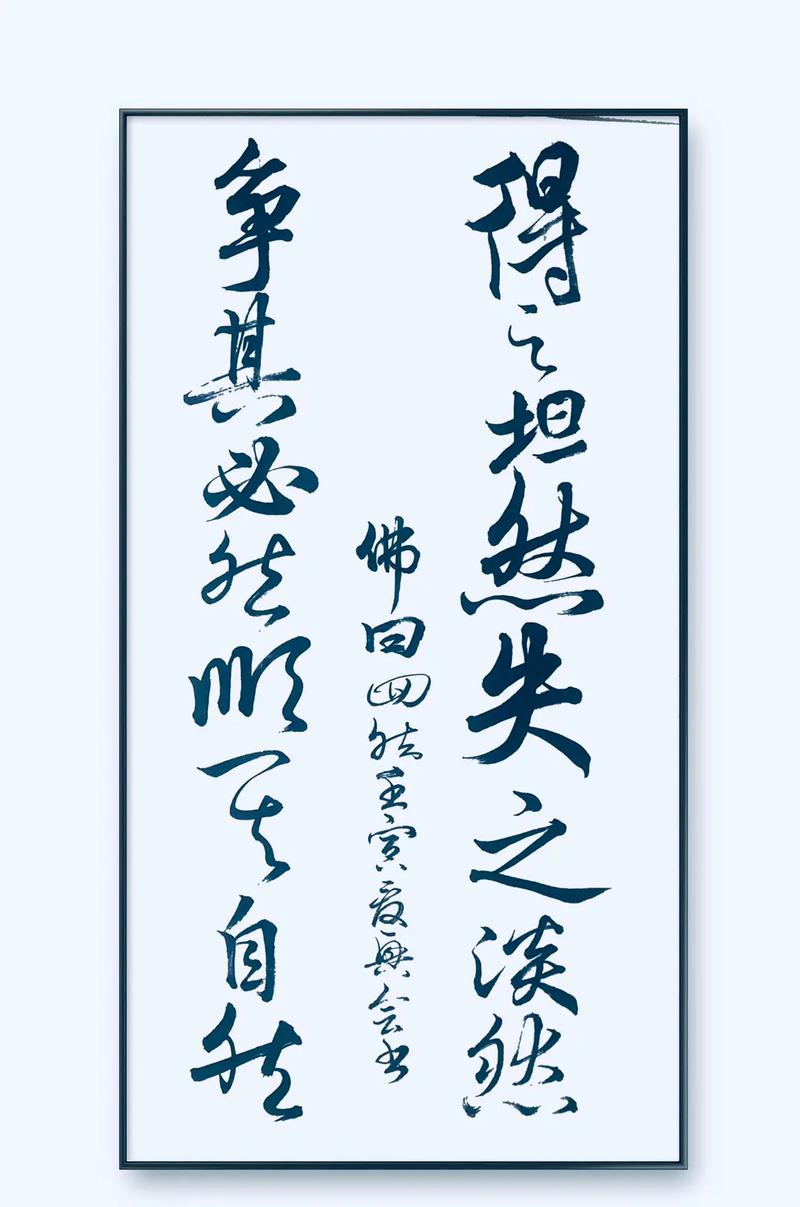 得之坦然失之淡然
争其必然順其自然
佛曰四然壬寅夏興会书